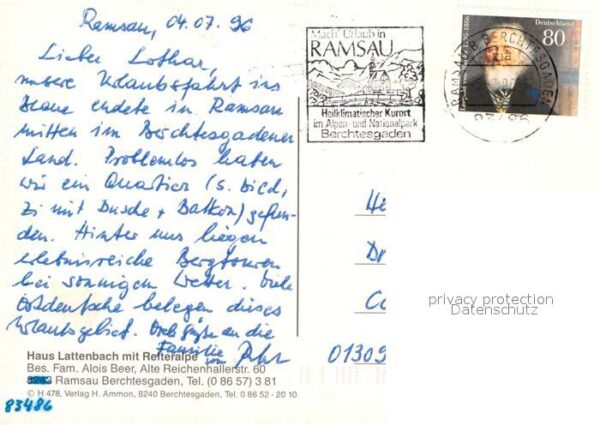 Ramsau, 04.07.96
Lieber Lothar,
unsere Urlaubsfahrt ins
Blaue endete in Ramsau
mitten im Berchtesgadener
Land. Problemlos haben
wir ein Quartier (s. Bild,
Zi mit Dusche + Balkon) gefun-
den. Hinter uns liegen
erlebnisreiche Bergtouren
bei sonnigem Wetter. Viele
Ostdeutsche belegen dieses
Urlaubsgebiet. Viele Grüße an die
Familie von
Haus Lattenbach mit Reiteralpe
Bes. Fam. Alois Beer, Alte Reichenhallerstr. 60
Ramsau Berchtesgaden, Tel. (0 86 57) 3 81
© H 478, Verlag H. Ammon, 8240 Berchtesgaden, Tel. 0 86 52 - 20 10
83486
Mach' Urlaub in
RAMSAU
Heilklimatischer Kurort
im Alpen- und Nationalpark
Berchtesgaden
Deutschland
80
RAMSAU B BERCHTESGADEN
01309
privacy protection
Datenschutz